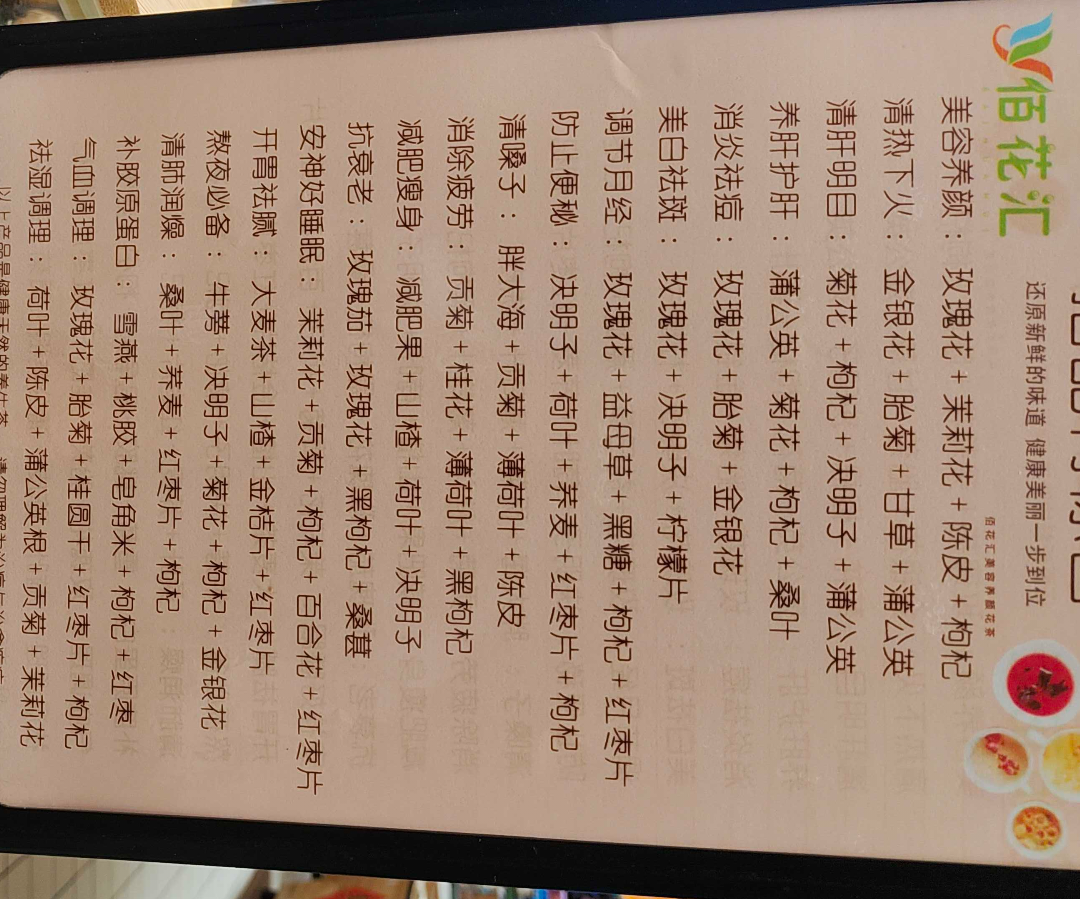 佰花汇
还原新鲜的味道 健康美丽一步到位
佰花汇美容养颜花茶
美容养颜：玫瑰花＋茉莉花＋陈皮＋枸杞
清热下火：金银花＋胎菊＋甘草＋蒲公英
清肝明目：菊花＋枸杞＋决明子＋蒲公英
养肝护肝：蒲公英＋菊花＋枸杞＋桑叶
消炎祛痘：玫瑰花＋胎菊＋金银花
美白祛斑：玫瑰花＋决明子＋柠檬片
调节月经：玫瑰花＋益母草＋黑糖＋枸杞＋红枣片
防止便秘：决明子＋荷叶＋荞麦＋红枣片＋枸杞
清嗓子：胖大海＋贡菊＋薄荷叶＋陈皮
消除疲劳：贡菊＋桂花＋薄荷叶＋黑枸杞
减肥瘦身：减肥果＋山楂＋荷叶＋决明子
抗衰老：玫瑰茄＋玫瑰花＋黑枸杞＋桑葚
安神好睡眠：茉莉花＋贡菊＋枸杞＋百合花＋红枣片
开胃祛腻：大麦茶＋山楂＋金桔片＋红枣片
熬夜必备：牛蒡＋决明子＋菊花＋枸杞＋金银花
清肺润燥：桑叶＋荞麦＋红枣片＋枸杞
补胶原蛋白：雪燕＋桃胶＋皂角米＋枸杞＋红枣
气血调理：玫瑰花＋胎菊＋桂圆干＋红枣片＋枸杞
祛湿调理：荷叶＋陈皮＋蒲公英根＋贡菊＋茉莉花
以上产品是健康天然的养生茶